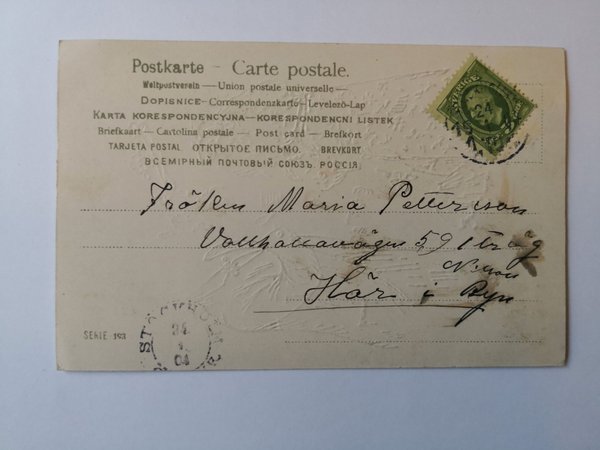 Postkarte - Carte postale.
Weltpostverein — Union postale universelle —
DOPISNICE — Correspondenzkarte — Levelező-Lap
KARTA KORESPONDENCYJNA — KORESPONDENCNI LISTEK
Briefkaart — Cartolina postale — Post card — Brefkort
TARJETA POSTAL ОТКРЫТОЕ ПИСЬМО. BREVKORT
ВСЕМІРНЫЙ ПОЧТОВЫЙ СОЮЗЪ. РОССІЯ.
SVERIGE
24
Fröken Maria Petterson
Valhallavägen 59 1 tr ög
Här i Byn
SERIE 193
STOCKHOLM
24
1
04